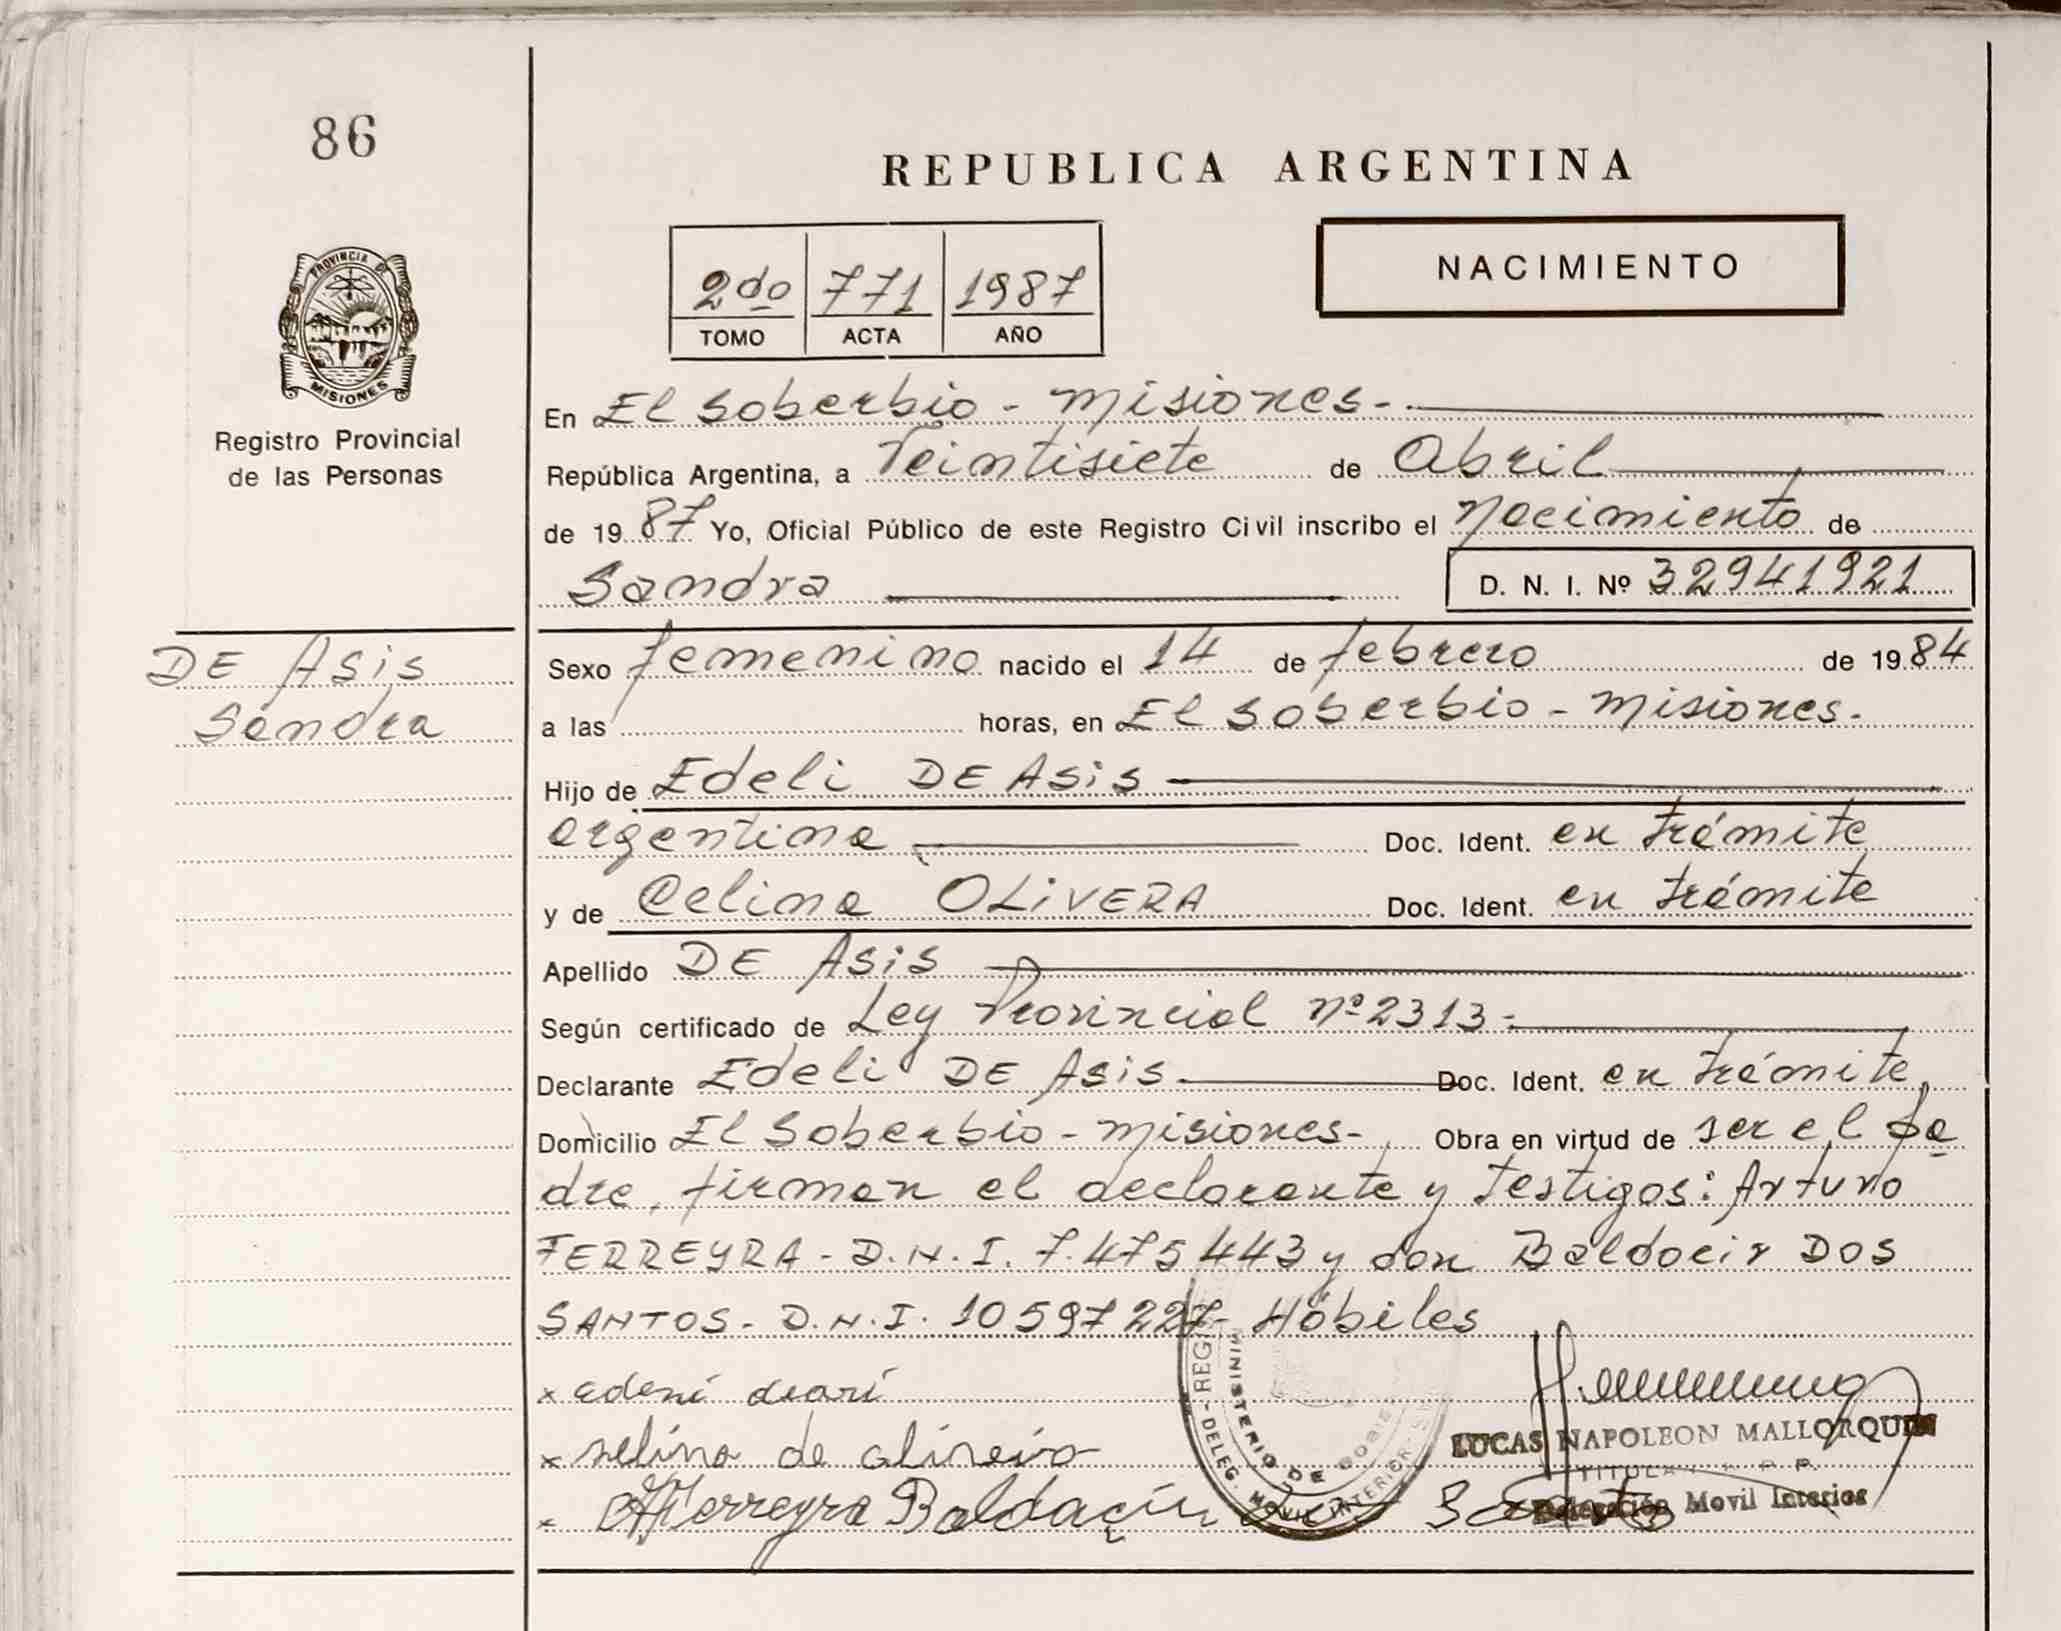 86
REPUBLICA ARGENTINA
2do 771 1987
TOMO ACTA AÑO
NACIMIENTO
PROVINCIA DE
MISIONES
Registro Provincial
de las Personas
DE ASiS
Sandra
En El Soberbio - Misiones -
República Argentina, a Veintisiete de Abril
de 19 87 Yo, Oficial Público de este Registro Civil inscribo el Nacimiento de
Sandra D. N. I. Nº 32941921
Sexo femenino nacido el 14 de febrero de 19 84
a las horas, en El Soberbio - Misiones.
Hijo de Edeli DE ASiS
argentina Doc. Ident. en trámite
y de Celina OLiVERA Doc. Ident. en trámite
Apellido DE ASiS
Según certificado de Ley Provincial Nº 2313 -
Declarante Edeli DE ASiS Doc. Ident. en trámite,
Domicilio El Soberbio - Misiones - Obra en virtud de ser el pa
dre, firman el declarante y testigos: Arturo
FERREYRA - D.N.I. 7.475443 y don Baldocir DOS
SANTOS - D.N.I. 10597227 - Hábiles
x
x selina de
x Ferreyra Baldaçir dos Santos
MINISTERIO DE GOBIE
DELEG. MOVIL INTERIOR
LUCAS NAPOLEON MALLORQUIN
TITULAR R. P. P.
Delegación Movil Interior